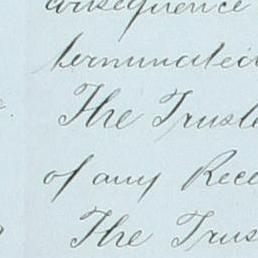 consequence
terminated
The Truste
of any Rece
The Trus